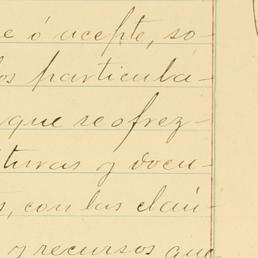 e ó acepte, so-
os particula-
que se ofrez-
turas y docu-
s, con las cláu-
y recursos que